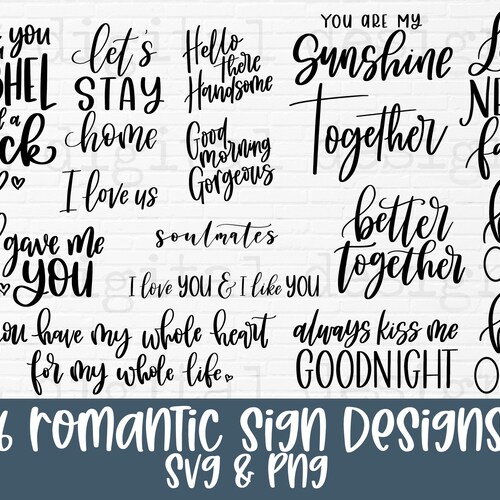 you
let's
STAY
home
I love us
Hello
there
Handsome
Good
morning
Gorgeous
YOU ARE MY
Sunshine
Together
a
gave me
YOU
soulmates
I love YOU & I like YOU
better
together
you have my whole heart
for my whole life
always kiss me
GOODNIGHT
6 Romantic Sign Designs
SVG & PNG